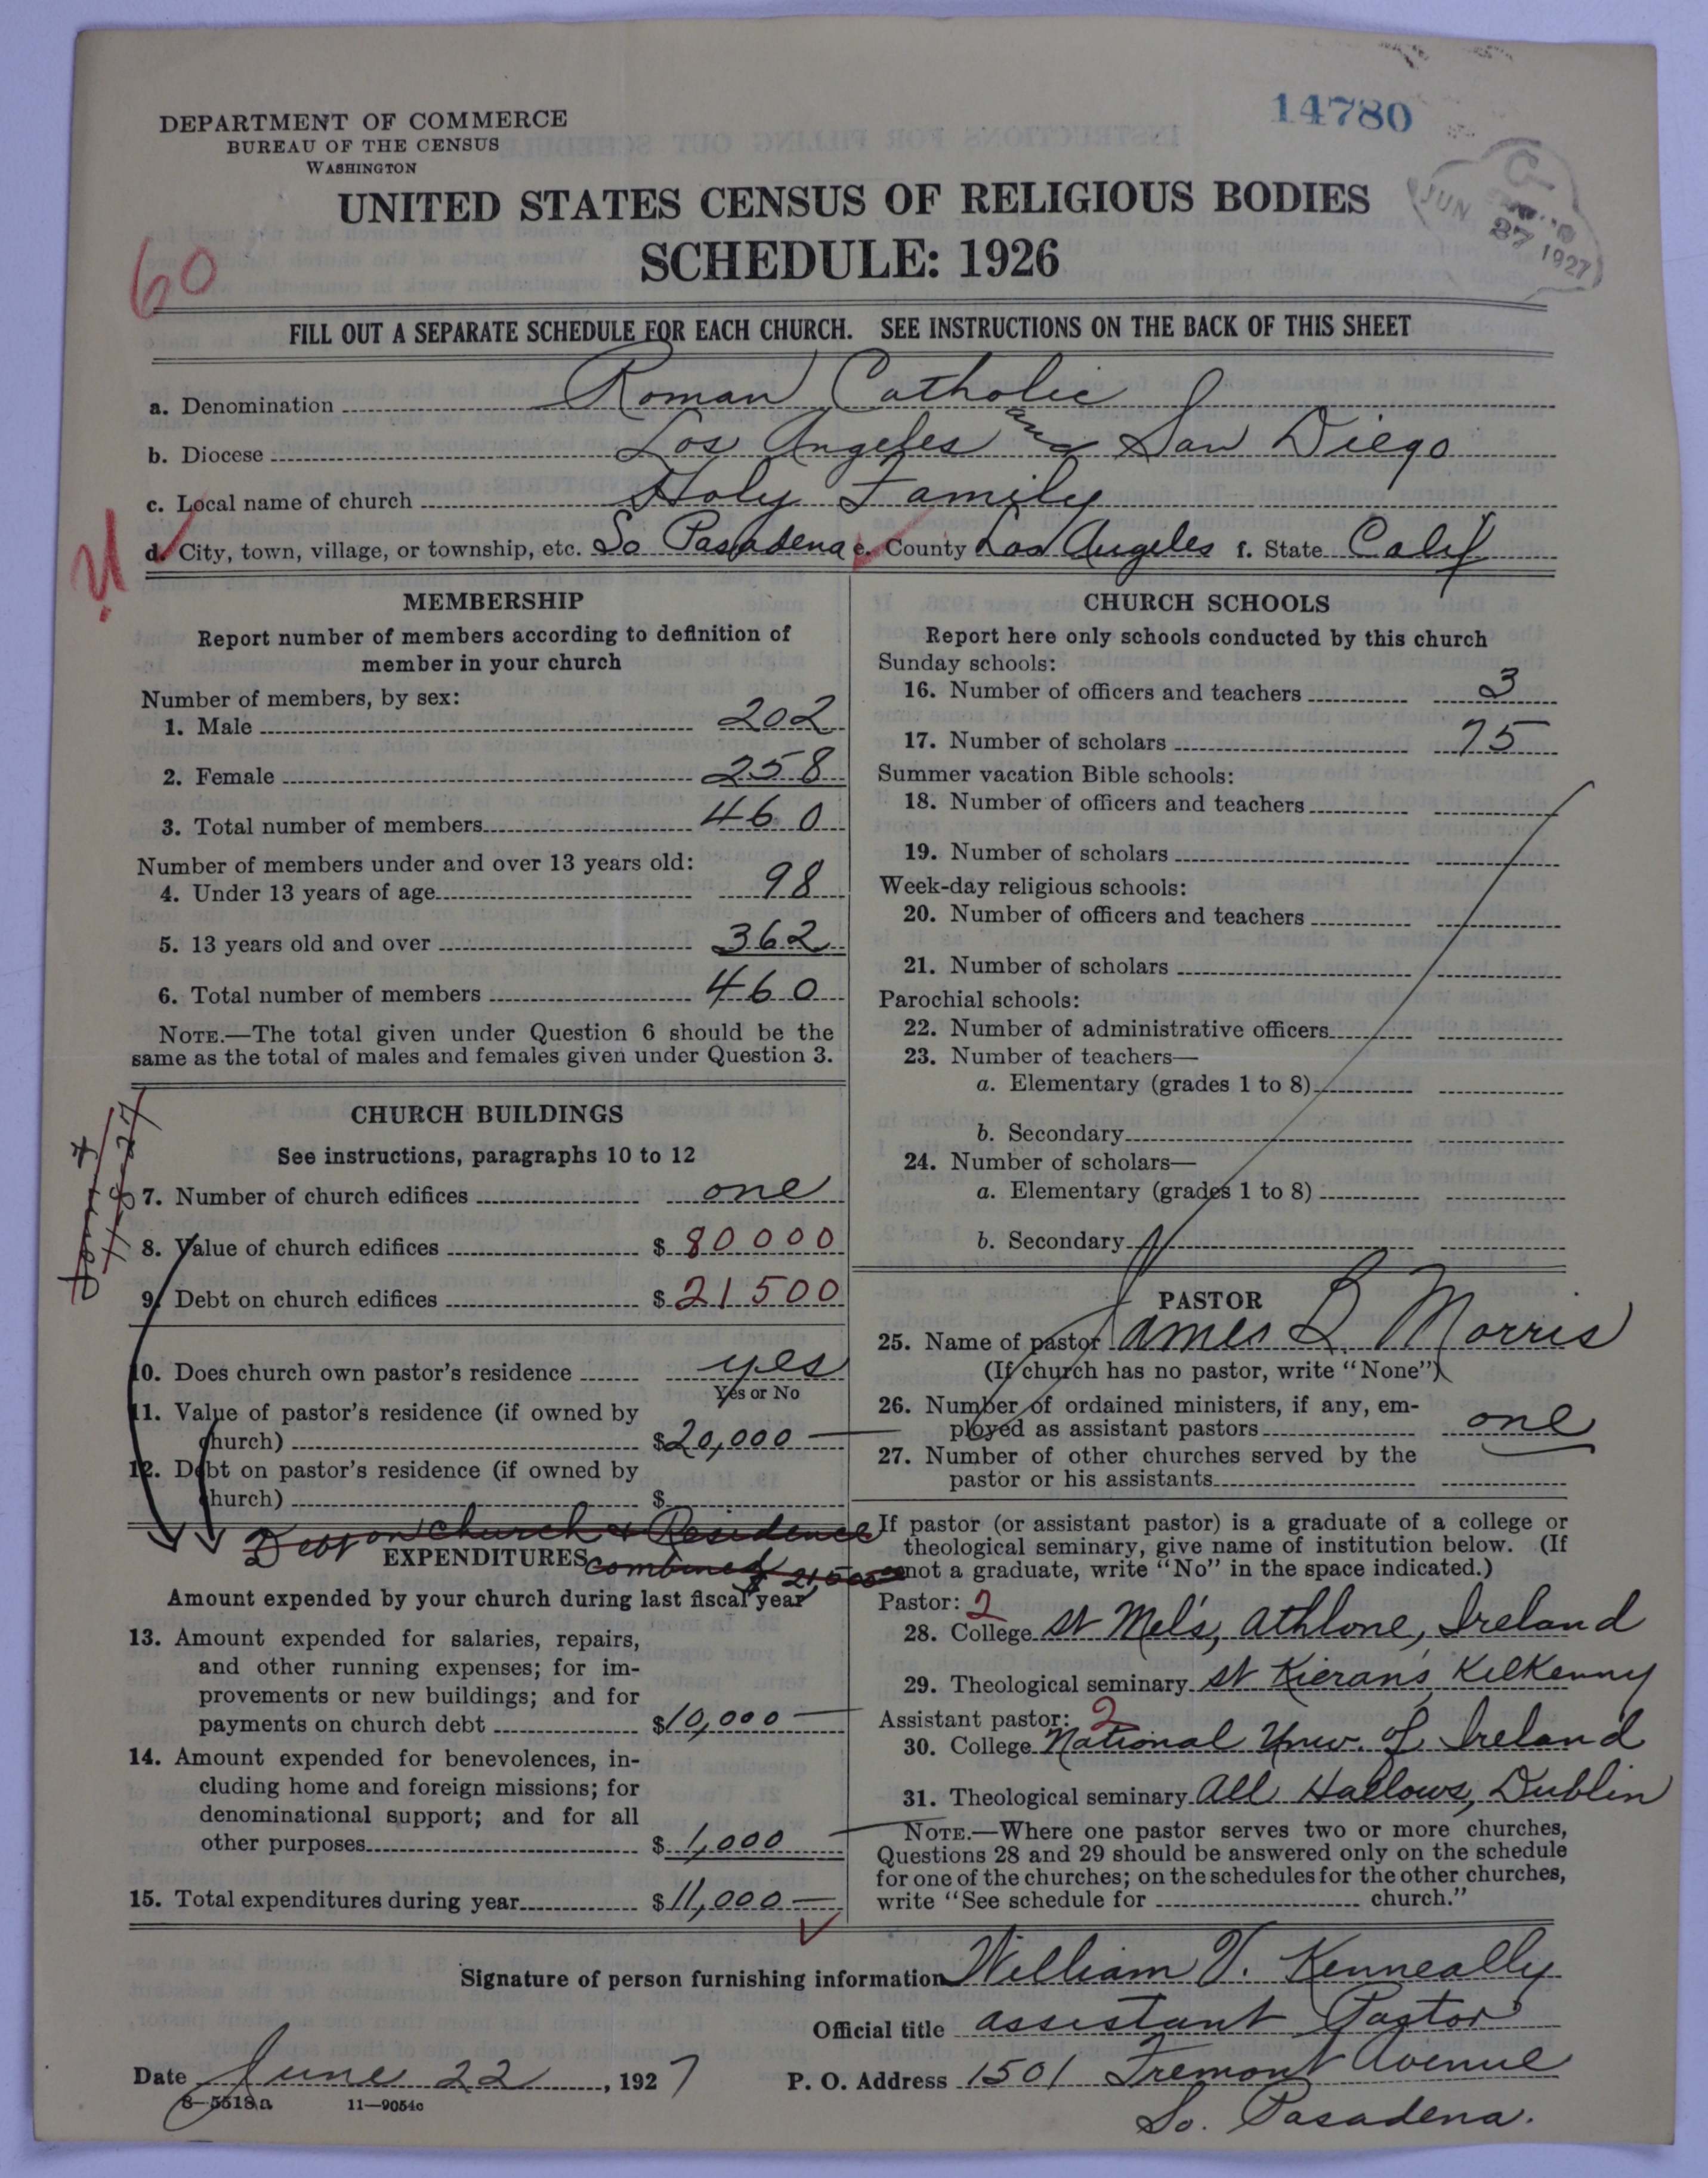 14780
DEPARTMENT OF COMMERCE
BUREAU OF THE CENSUS
WASHINGTON
UNITED STATES CENSUS OF RELIGIOUS BODIES
SCHEDULE: 1926
JUN 27 1927
60
FILL OUT A SEPARATE SCHEDULE FOR EACH CHURCH. SEE INSTRUCTIONS ON THE BACK OF THIS SHEET
a. Denomination Roman Catholic
b. Diocese Los Angeles and San Diego
c. Local name of church Holy Family
d. City, town, village, or township, etc. So Pasadena e. County Los Angeles f. State Calif
MEMBERSHIP
Report number of members according to definition of
member in your church
Number of members, by sex:
1. Male 202
2. Female 258
3. Total number of members 460
Number of members under and over 13 years old:
4. Under 13 years of age 98
5. 13 years old and over 362
6. Total number of members 460
NOTE.—The total given under Question 6 should be the
same as the total of males and females given under Question 3.
CHURCH BUILDINGS
See instructions, paragraphs 10 to 12
7. Number of church edifices one
8. Value of church edifices $ 80000
9. Debt on church edifices $ 21500
10. Does church own pastor's residence yes
Yes or No
11. Value of pastor's residence (if owned by
church) $20,000
12. Debt on pastor's residence (if owned by
church) $
Debt on Church & Residence
combined
EXPENDITURES
Amount expended by your church during last fiscal year
13. Amount expended for salaries, repairs,
and other running expenses; for im-
provements or new buildings; and for
payments on church debt $10,000
14. Amount expended for benevolences, in-
cluding home and foreign missions; for
denominational support; and for all
other purposes $ 1,000
15. Total expenditures during year $11,000
CHURCH SCHOOLS
Report here only schools conducted by this church
Sunday schools:
16. Number of officers and teachers 3
17. Number of scholars 75
Summer vacation Bible schools:
18. Number of officers and teachers
19. Number of scholars
Week-day religious schools:
20. Number of officers and teachers
21. Number of scholars
Parochial schools:
22. Number of administrative officers
23. Number of teachers—
a. Elementary (grades 1 to 8)
b. Secondary
24. Number of scholars—
a. Elementary (grades 1 to 8)
b. Secondary
PASTOR
25. Name of pastor James B. Morris
(If church has no pastor, write "None")
26. Number of ordained ministers, if any, em-
ployed as assistant pastors one
27. Number of other churches served by the
pastor or his assistants
If pastor (or assistant pastor) is a graduate of a college or
theological seminary, give name of institution below. (If
not a graduate, write "No" in the space indicated.)
Pastor: 2
28. College St Mel's, Athlone, Ireland
29. Theological seminary St Kieran's Kilkenny
Assistant pastor: 2
30. College National Univ. of Ireland
31. Theological seminary All Hallows, Dublin
NOTE.—Where one pastor serves two or more churches,
Questions 28 and 29 should be answered only on the schedule
for one of the churches; on the schedules for the other churches,
write "See schedule for church."
Signature of person furnishing information William V. Kenneally
Official title assistant Pastor
Date June 22, 1927 P. O. Address 1501 Fremont Avenue
So. Pasadena.
8—5518a 11—9054c